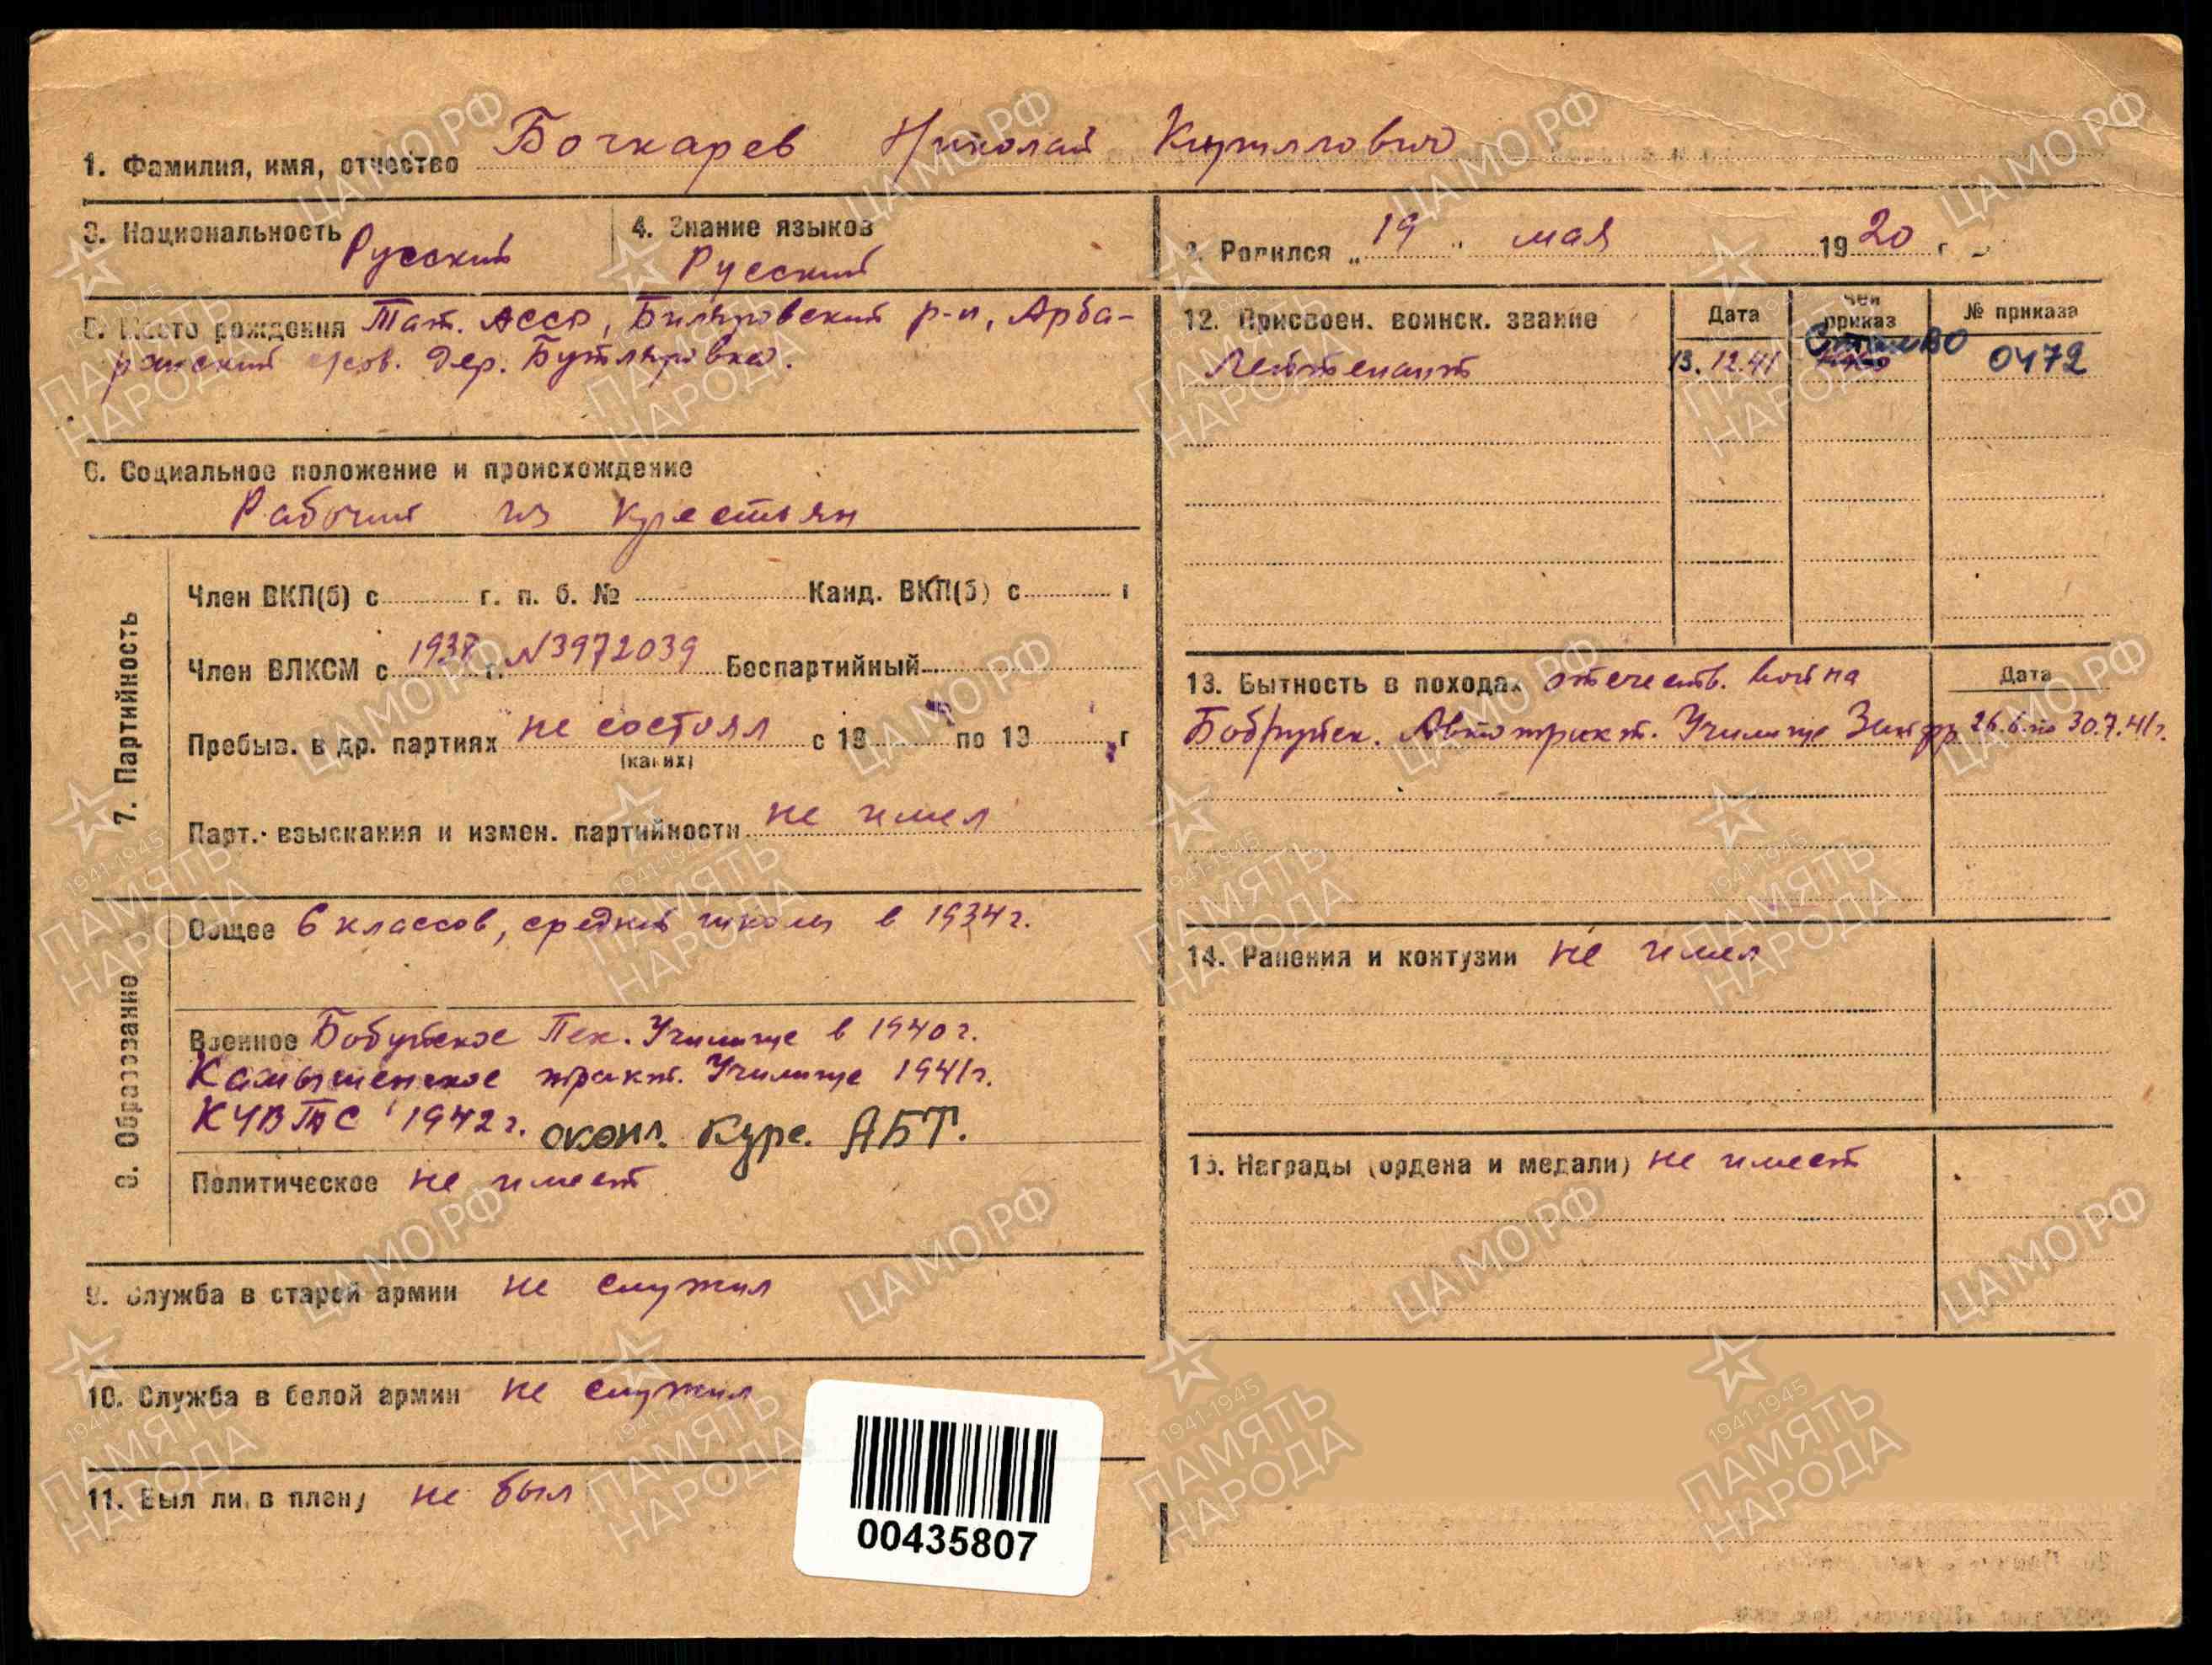 1. Фамилия, имя, отчество Бочкарев Николай Кириллович
3. Национальность Русский
4. Знание языков Русский
2. Родился „19" мая 1920 г
5. Место рождения Тат. АССР, Биляровский р-н, Арба-
дер. Бутляровка.
6. Социальное положение и происхождение
Рабочий из крестьян
7. Партийность
Член ВКП(б) с г. п. б. № Канд. ВКП(б) с г
Член ВЛКСМ с 1938 г. N3972039 Беспартийный
Пребыв. в др. партиях не состоял с 19 по 19 г
(каких)
Парт. взыскания и измен. партийности не имел
8. Образование
Общее 6 классов, средней школы в 1934г.
Военное Бобуйское Пех. Училище в 1940г.
Камышенское тракт. Училище 1941г.
1942г. оконч. Курс. АБТ.
Политическое не имеет
9. Служба в старой армии не служил
10. Служба в белой армии не служил
11. Был ли в плену не был
12. Присвоен. воинск. звание
Дата
Чей приказ
№ приказа
Лейтенант 13.12.41 0472
13. Бытность в походах отечеств. война
Дата
Бобруйск. Автотракт. Училище 26.6 по 30.7.41г.
14. Ранения и контузии не имел
15. Награды (ордена и медали) не имеет
00435807
ЦАМО.РФ
1941-1945
ПАМЯТЬ
НАРОДА